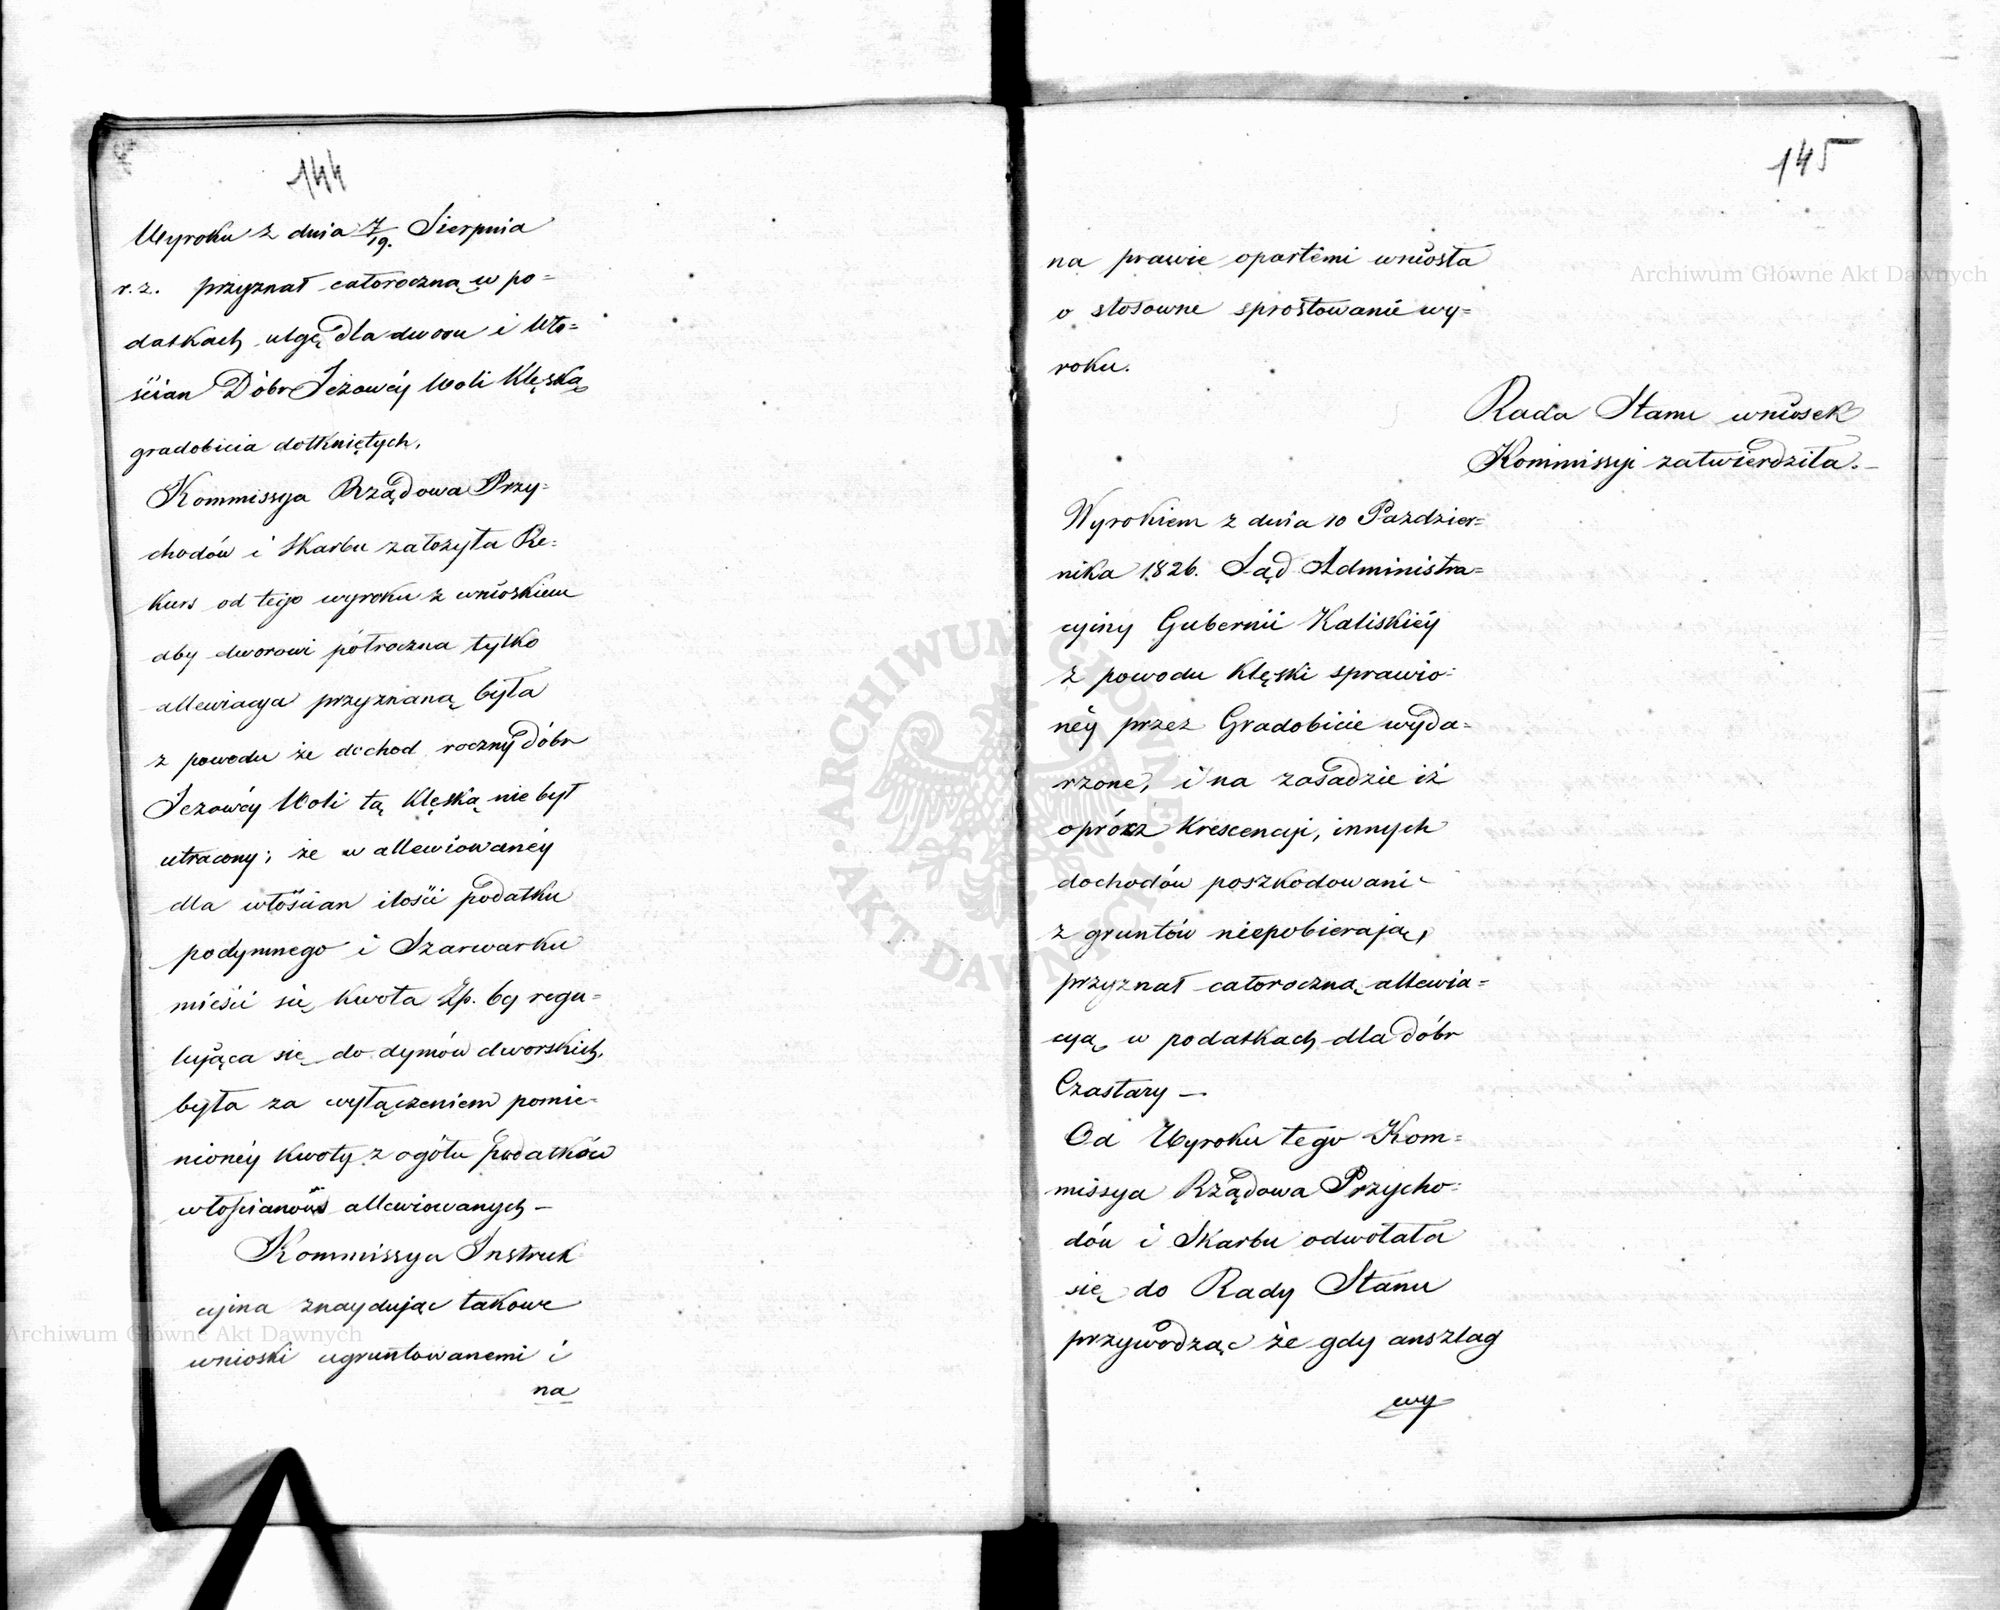 144
Wyroku z dnia 7/19. Sierpnia
r. z. przyznał całoroczną w po=
datkach ulgę dla dworu i Wło=
ścian Dóbr Jeżowéy Woli klęską
gradobicia dotkniętych.
Kommissya Rządowa Przy=
chodów i Skarbu założyła Re=
kurs od tego wyroku z wnioskiem
aby dworowi półroczna tylko
allewiacya przyznaną była
z powodu że dochod roczny dóbr
Jeżowéy Woli tą klęską nie był
utracony; że w allewiowanéy
dla włościan ilości podatku
podymnego i Szarwarku
mieści się kwota Zp. 69 regu=
lująca się do dymów dworskich,
była za wyłączeniem pomie=
nionéy kwoty z ogółu podatków
włościanów allewiowanych —
Kommissya Instruk
cyjna znaydując takowe
wnioski ugruntowanemi i
na
145
na prawie opartemi wniosła
o stosowne sprostowanie wy=
roku.
Rada Stanu wniosek
Kommissyi zatwierdziła. —
Wyrokiem z dnia 10 Paździer=
nika 1826. Sąd Administra=
cyiny Gubernii Kaliskiéy
z powodu klęski sprawio=
néy przez Gradobicie wyda=
rzone, i na zasadzie iż
oprócz krescencyi, innych
dochodów poszkodowani
z gruntów niepobierają,
przyznał całoroczną allewia=
cyą w podatkach dla dóbr
Czastary —
Od Wyroku tego Kom=
missya Rządowa Przycho=
dów i Skarbu odwołała
się do Rady Stanu
przywodząc że gdy anszlag
wy
Archiwum Główne Akt Dawnych
Archiwum Główne Akt Dawnych
ARCHIWUM GŁÓWNE AKT DAWNYCH